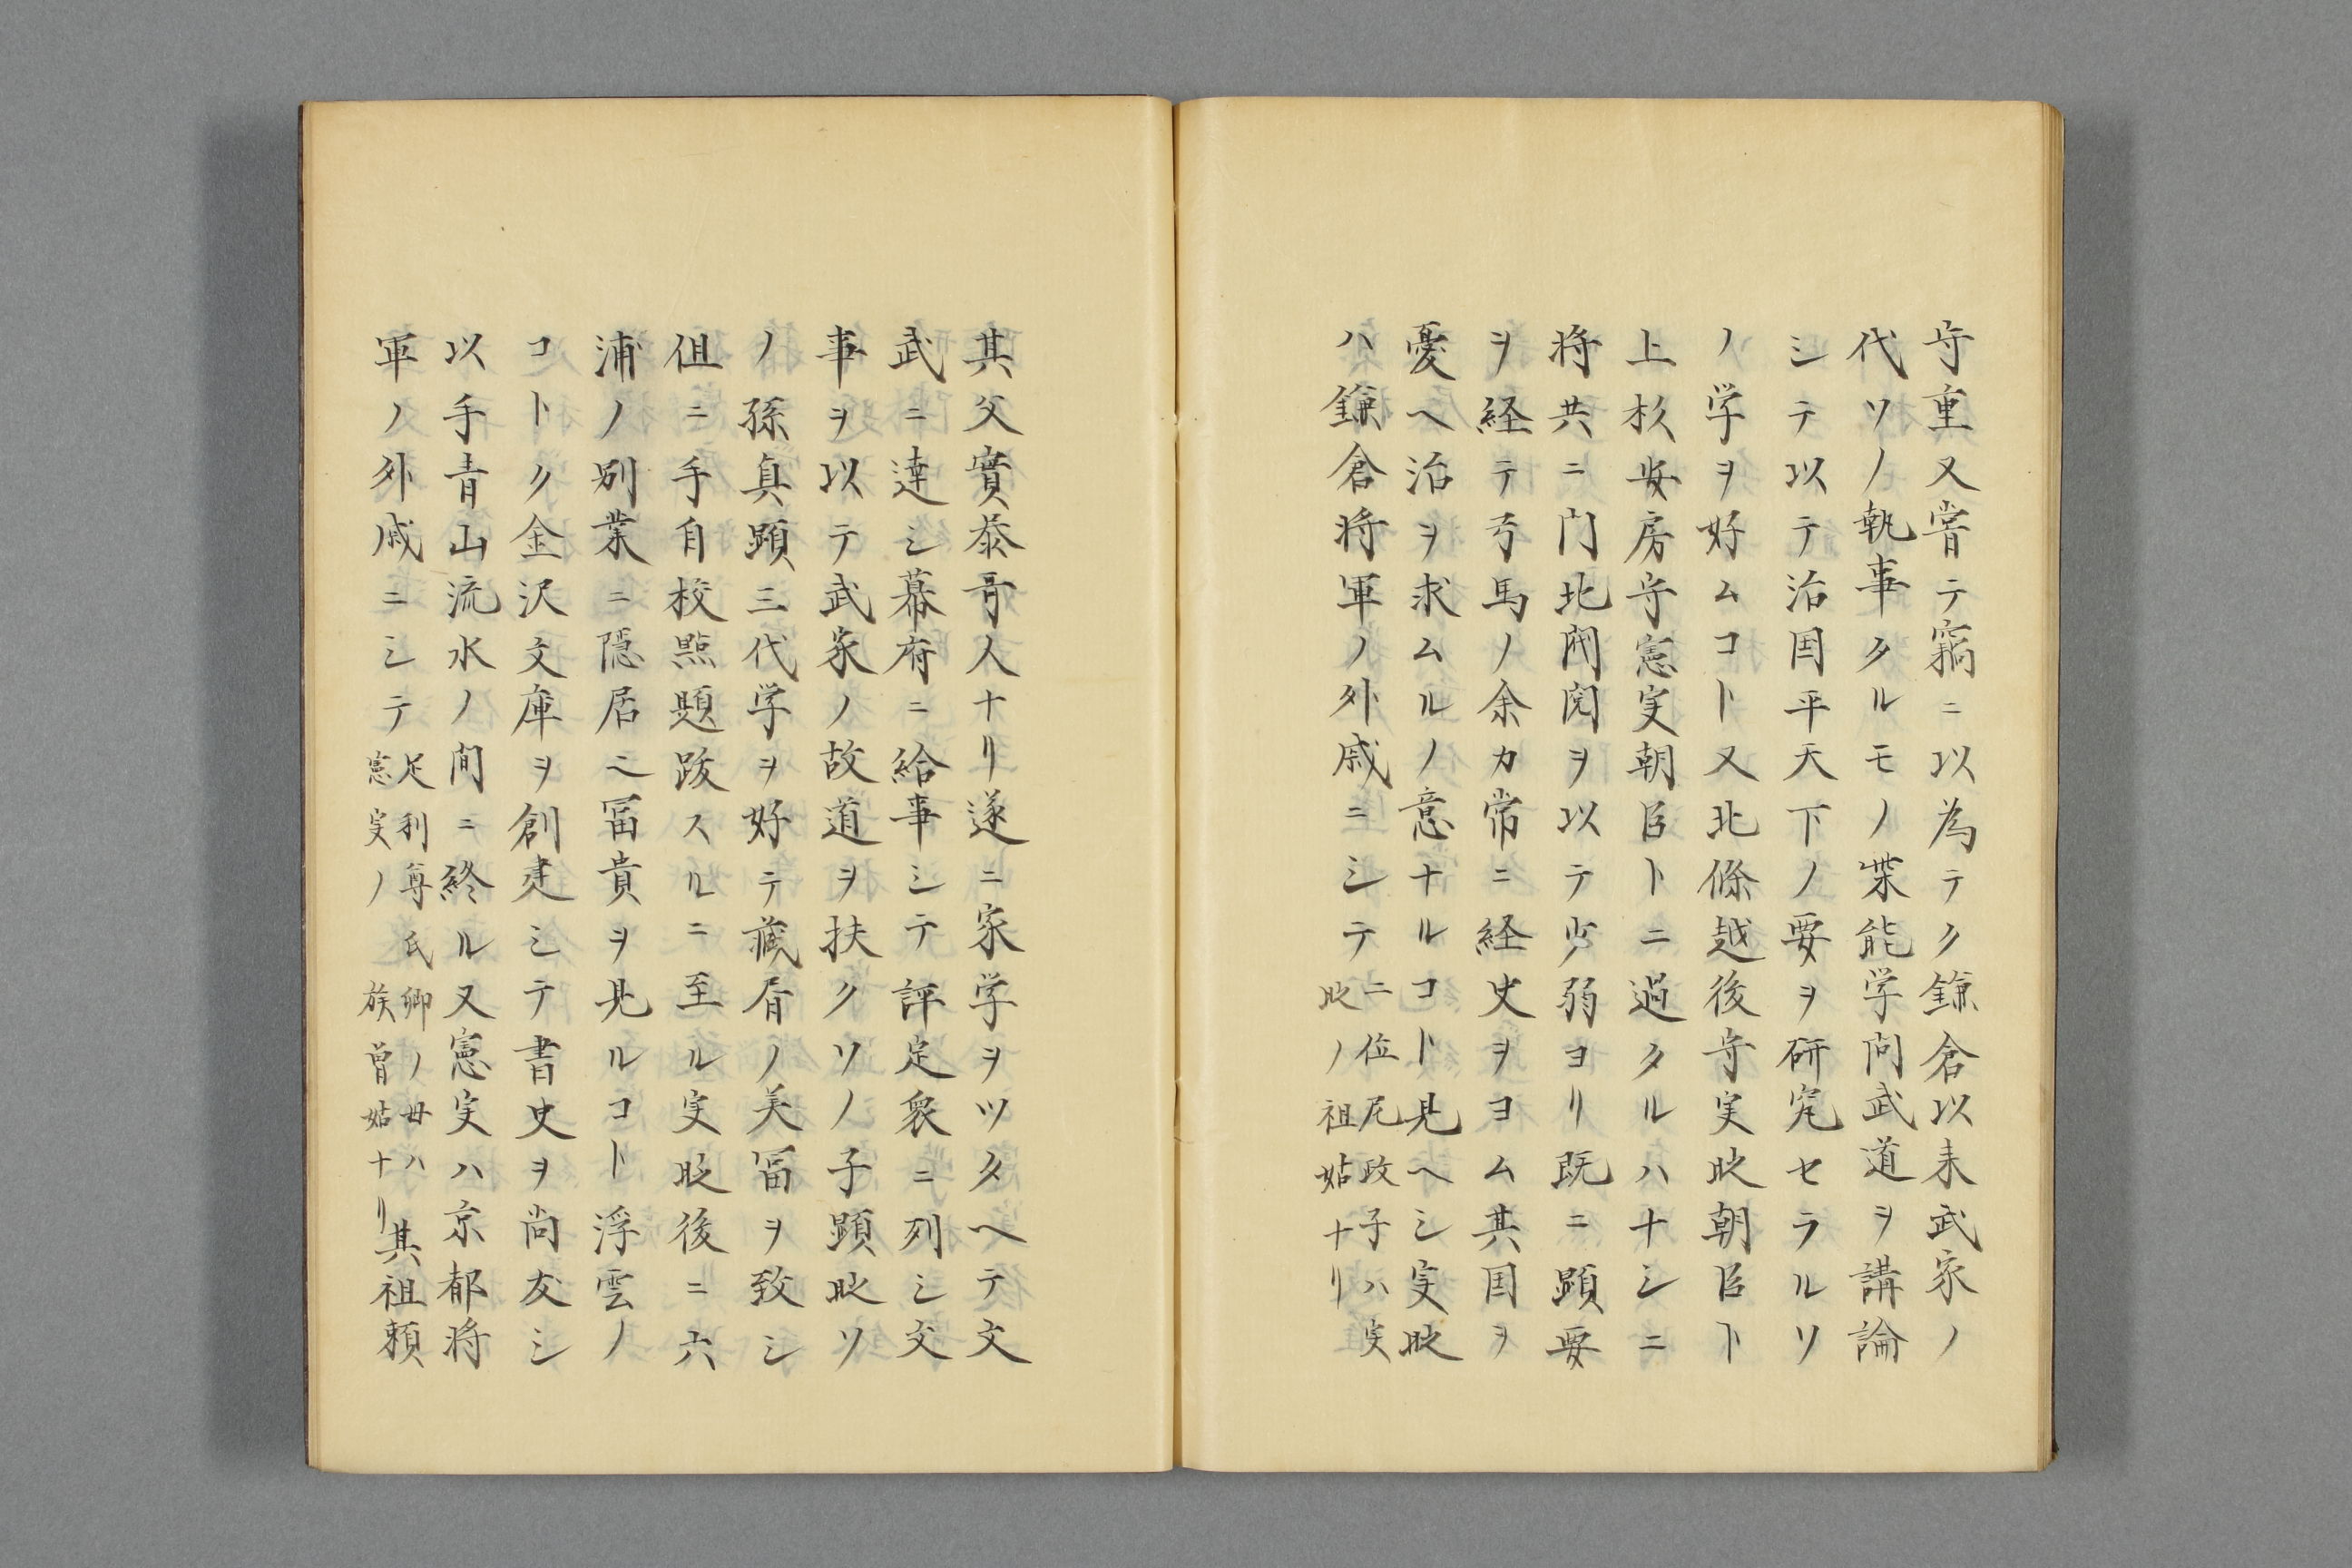 守重又嘗テ竊ニ以為テク鎌倉以来武家ノ
代ソノ執事クルモノ業能学问武道ヲ講論
シテ以テ治国平天下ノ要ヲ研究セラルソ
ノ学ヲ好ムコト又北條越後守実时朝臣ト
上杉安房守憲実朝臣トニ過クルハナシニ
将共ニ门地閥閲ヲ以テ少弱ヨリ既ニ顕要
ヲ経テ弓馬ノ余カ常ニ経史ヲヨム其国ヲ
憂ヘ治ヲ求ムルノ意ナルコト見ヘシ実时
ハ鎌倉将軍ノ外戚ニシテ二位尼政子ハ実
时ノ祖姑ナリ
其父實泰哥人ナリ遂ニ家学ヲツタヘテ文
武ニ達シ幕府ニ給事シテ評定衆ニ列シ文
事ヲ以テ武家ノ故道ヲ扶クソノ子顕时ソ
ノ孫貞顕三代学ヲ好テ蔵書ノ美冨ヲ致シ
但ニ手自校點題跋スルニ至ル実时後ニ六
浦ノ別業ニ隠居ニ冨貴ヲ見ルコト浮雲ノ
コトク金沢文庫ヲ創建シテ書史ヲ尚友シ
以手青山流水ノ间ニ終ル又憲実ハ京都将
軍ノ外戚ニシテ足利尊氏卿ノ母ハ
憲実ノ族曽姑ナリ
其祖頼